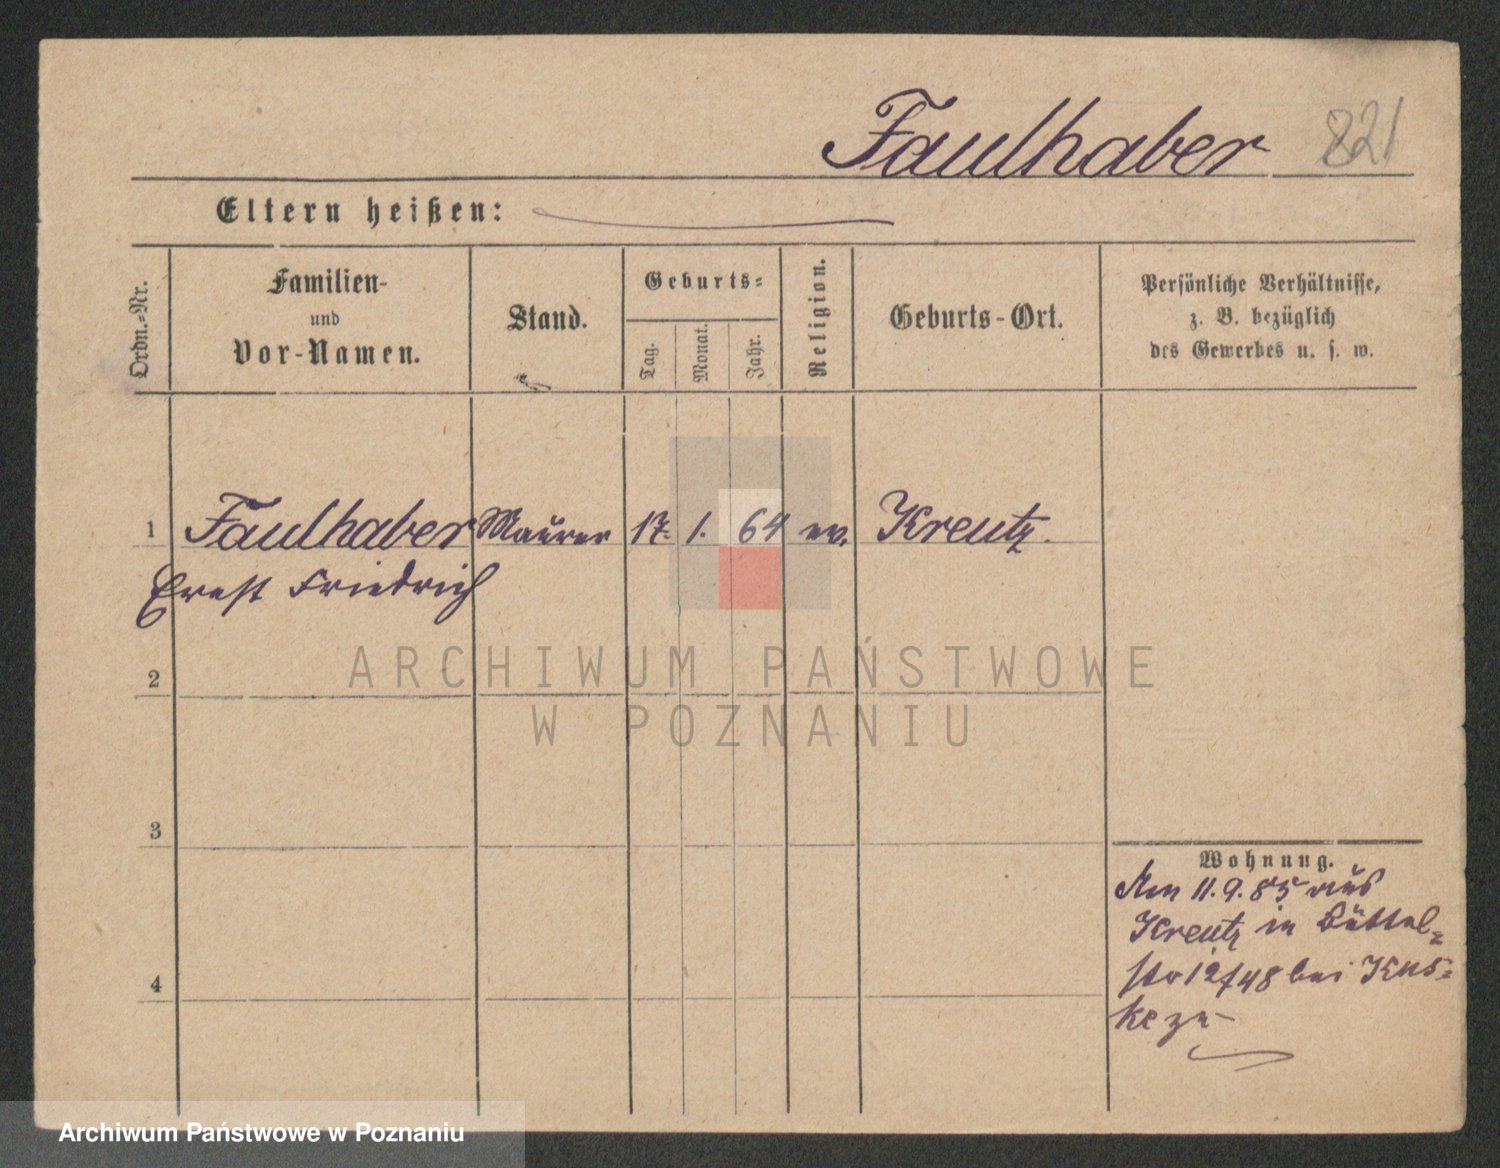 Faulhaber 821
Eltern heißen:
Ordn.-Nr.
Familien-
und
Vor-Namen.
Stand.
Geburts-
Tag.
Monat.
Jahr.
Religion.
Geburts-Ort.
Persönliche Verhältnisse,
z. B. bezüglich
des Gewerbes u. s. w.
1 Faulhaber Maurer 17. 1. 64 ev. Kreutz.
Ernst Friedrich
2
3
4
Wohnung.
Am 11.9.85 aus
Kreutz in Büttel-
str 12/48 bei Kus-
ke zu
ARCHIWUM PAŃSTWOWE
W POZNANIU
Archiwum Państwowe w Poznaniu